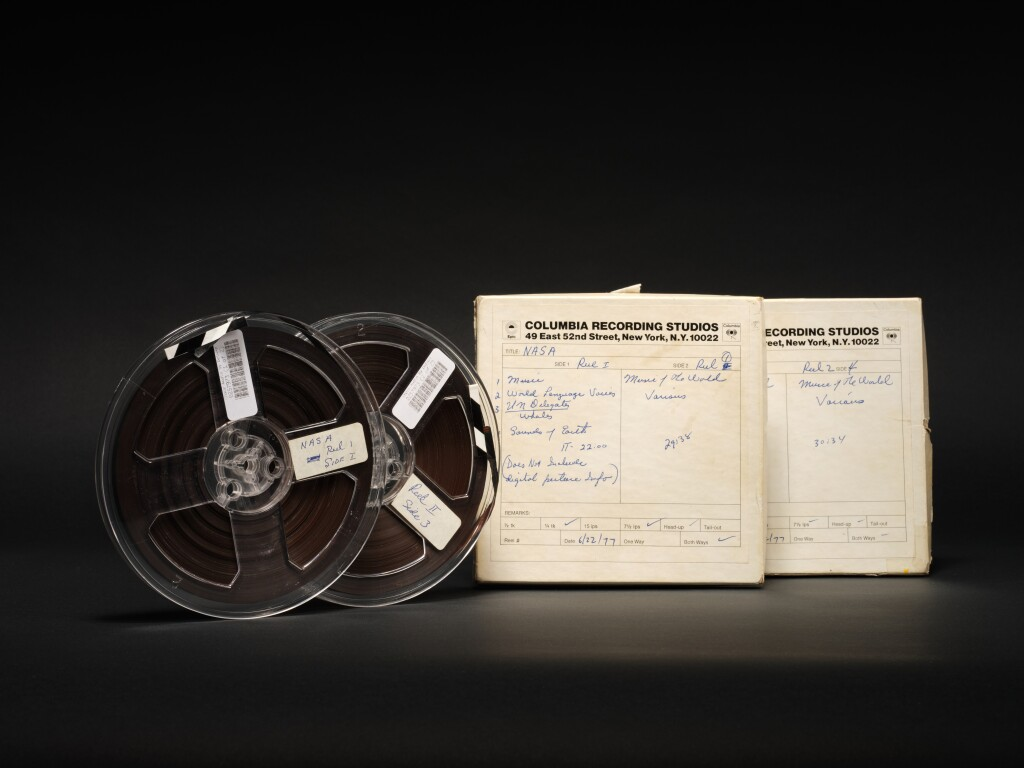 2
NASA
Reel 1
Side I
Reel II
Side 3
COLUMBIA RECORDING STUDIOS
49 East 52nd Street, New York, N.Y. 10022
Epic
Columbia
TITLE: NASA
SIDE 1 Reel I
SIDE 2 Reel
1 Music
2 World Language Voices
3 UN Delegates
Whales
Sounds of Earth
IT- 22:00
(Does Not Include
Digital picture Info)
Music of the World
Various
29:38
REMARKS:
½ tk ¼ tk ✓ 15 ips 7½ ips ✓ Head-up ✓ Tail-out
Reel # Date 6/22/77 One Way Both Ways ✓
ECORDING STUDIOS
reet, New York, N.Y. 10022
Columbia
Reel 2 SIDE 4
Music of the World
Various
30:34
7½ ips ✓ Head-up ✓ Tail-out
/77 One Way Both Ways ✓